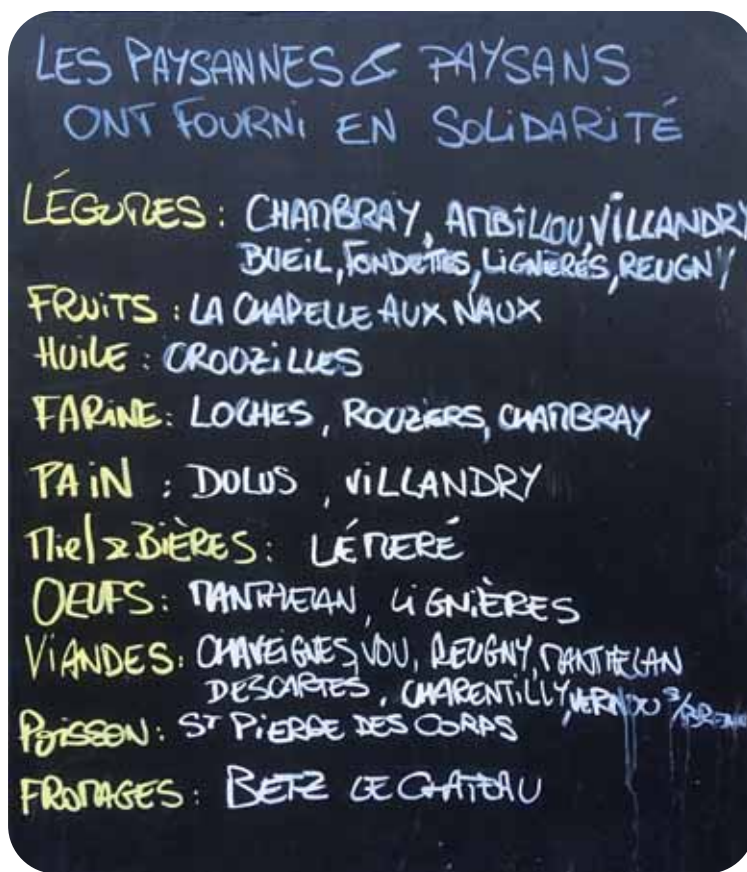 LES PAYSANNES & PAYSANS
ONT FOURNI EN SOLIDARITÉ
LÉGUMES : CHAMBRAY, AMBILLOU, VILLANDRY
BUEIL, FONDETTES, LIGNIÈRES, REUGNY
FRUITS : LA CHAPELLE AUX NAUX
HUILE : CROUZILLES
FARINE : LOCHES, ROUZIERS, CHAMBRAY
PAIN : DOLUS, VILLANDRY
Miel & BIÈRES : LÉMERÉ
OEUFS : MANTHELAN, LIGNIÈRES
VIANDES : CHAVEIGNES, VOU, REUGNY, MANTHELAN
DESCARTES, CHARENTILLY, VERNOU S/BRENNE
POISSON : ST PIERRE DES CORPS
FROMAGES : BETZ LE CHATEAU